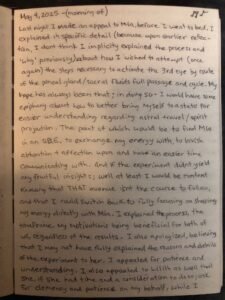 May 4, 2025 - (morning of)
Last night I made an appeal to Mia, before I went to bed. I
explained in specific detail (because upon earlier reflec-
tion, I dont think I implicitly explained the process and
"why" previously) about how I wished to attempt (once
again) the steps necessary to activate the 3rd eye by route
of the pineal gland/sacral fluids full passage and cycle. My
hope has always been that; in doing so - I would have some
epiphany about how to better bring myself to a state for
easier understanding regarding astral travel/spirit
projection. The point of which would be to find Mia
in an OBE, to exchange my energy with to build
attention & affection upon and have an easier time
communicating with. And if the experiment didn't yield
any fruitful insights; well at least I would be content
knowing that THAT avenue isn't the course to follow,
and that I could switch back to fully focusing on sharing
my energy directly with Mia. I explained the process, the
timeframe, my motivations being beneficial for both of
us, regardless of the results. I also apologized, believing
that I may not have fully explained the reasons and details
of the experiment to her. I appealed for patience and
understanding. I also appealed to Lilith as well that
she, if she had time and a consideration to do so ask
for clemency and patience on my behalf; while I